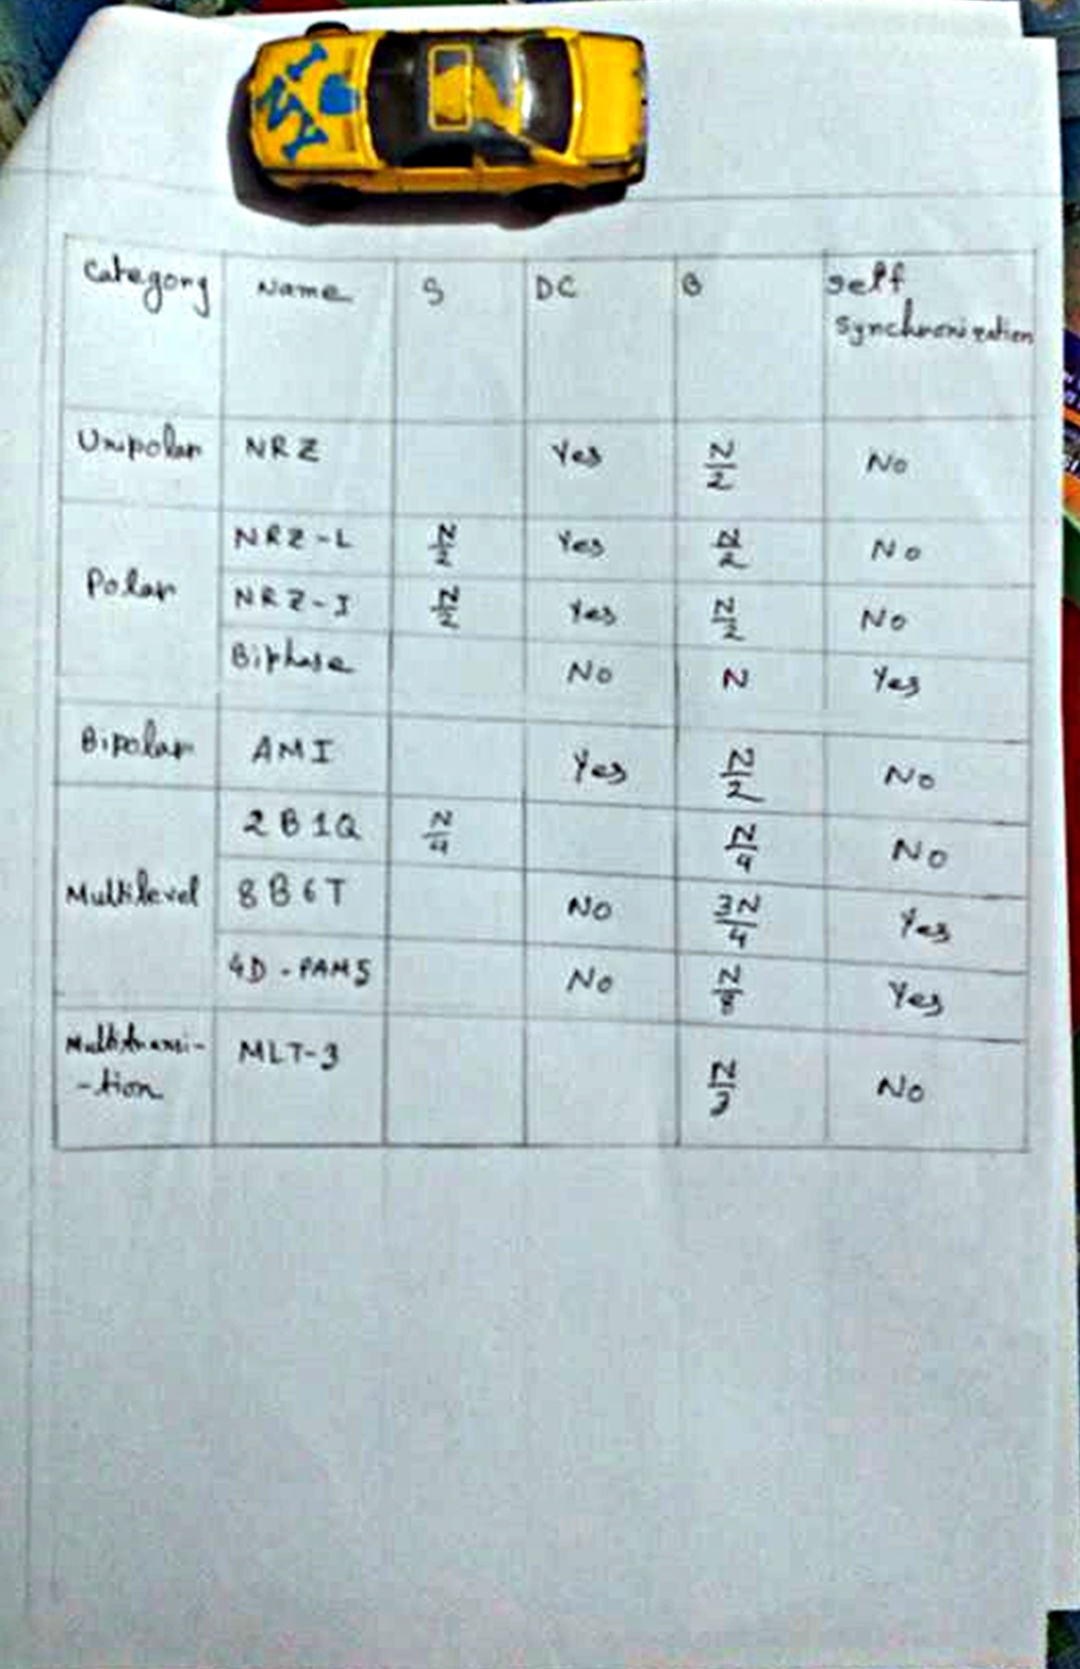 I ♥ NY
Category Name S DC B Self
Synchronization
Unipolar NRZ Yes N/2 No
Polar
NRZ-L N/2 Yes N/2 No
NRZ-I N/2 Yes N/2 No
Biphase No N Yes
Bipolar AMI Yes N/2 No
Multilevel
2B1Q N/4 N/4 No
8B6T No 3N/4 Yes
4D-PAM5 No N/8 Yes
Multitransi-
-tion MLT-3 N/3 No